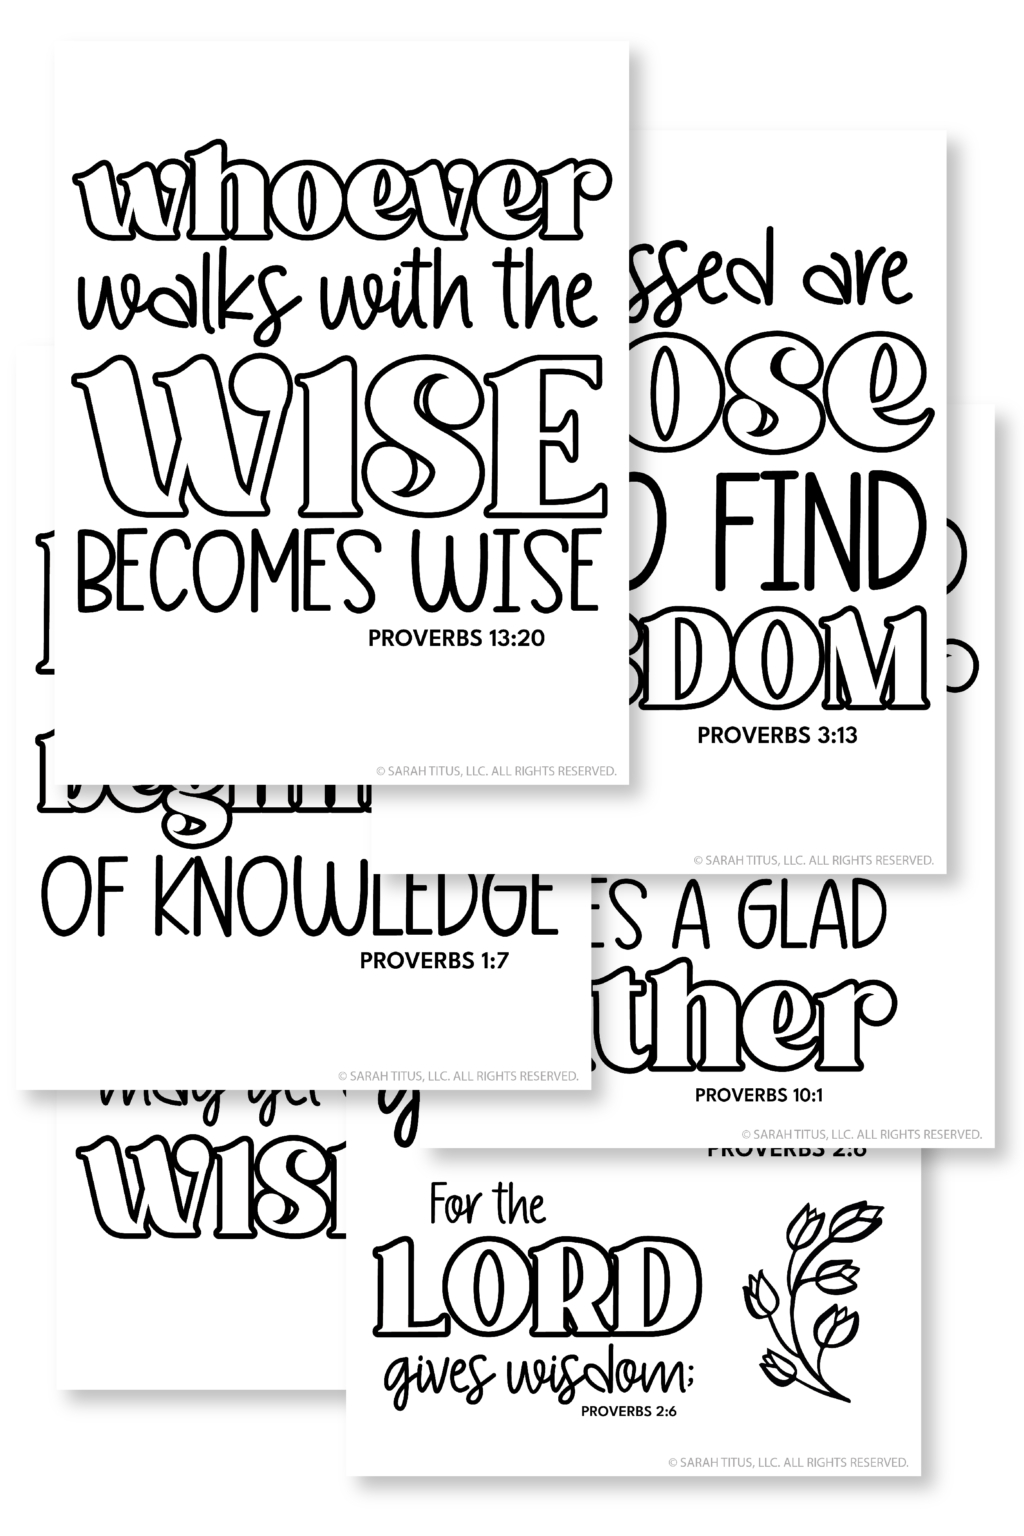 whoever
walks with the
WISE
BECOMES WISE
PROVERBS 13:20
© SARAH TITUS, LLC. ALL RIGHTS RESERVED.
are
FIND
PROVERBS 3:13
© SARAH TITUS, LLC. ALL RIGHTS RESERVED.
OF KNOWLEDGE
PROVERBS 1:7
© SARAH TITUS, LLC. ALL RIGHTS RESERVED.
A GLAD
PROVERBS 10:1
© SARAH TITUS, LLC. ALL RIGHTS RESERVED.
PROVERBS 2:6
For the
LORD
gives wisdom;
PROVERBS 2:6
© SARAH TITUS, LLC. ALL RIGHTS RESERVED.